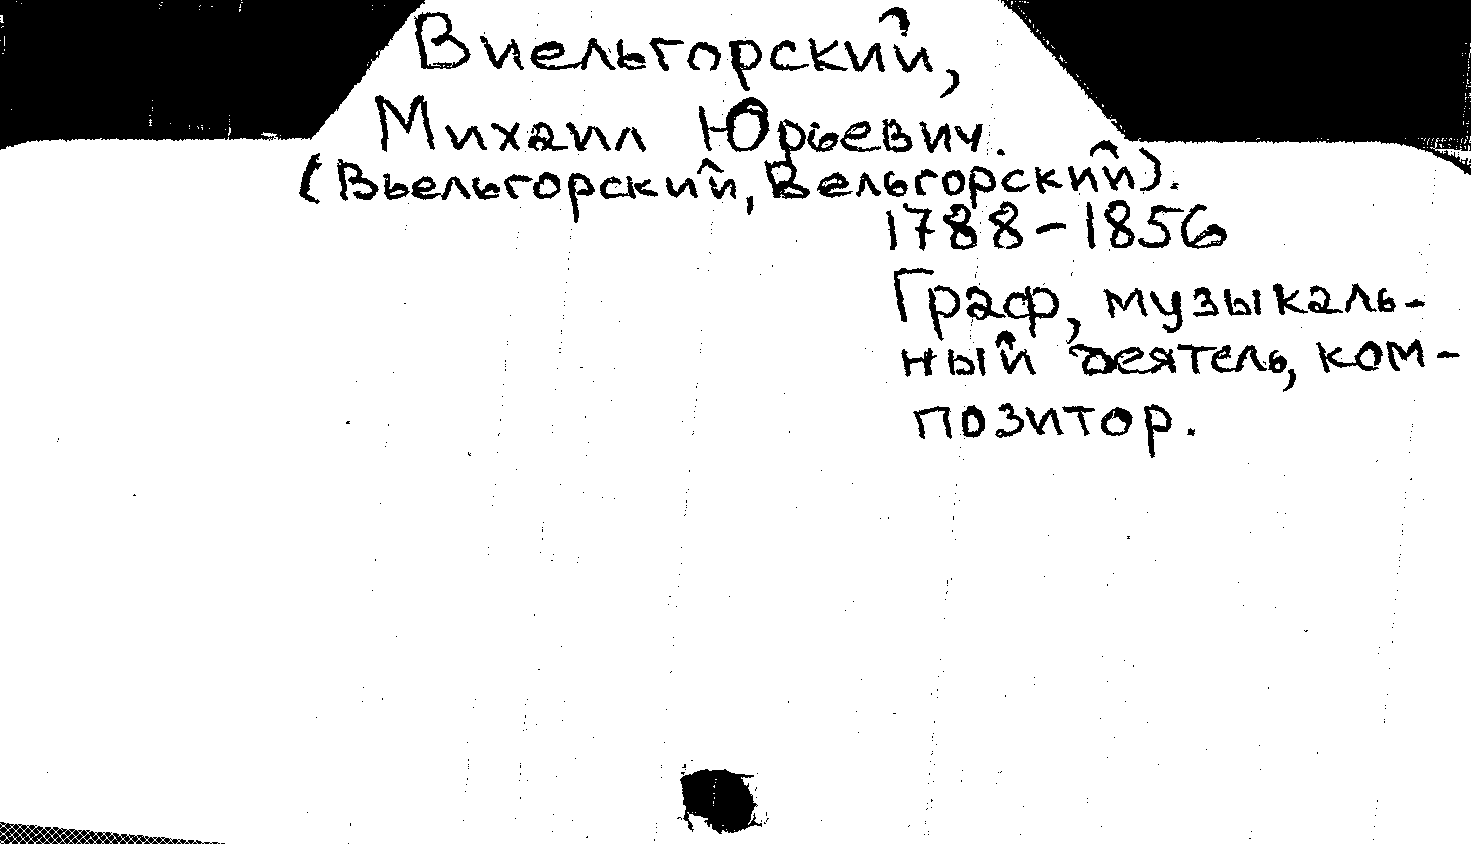 Виельгорский,
Михаил Юрьевич.
(Вьельгорский, Вельгорский).
1788-1856
Граф, музыкаль-
ный деятель, ком-
позитор.